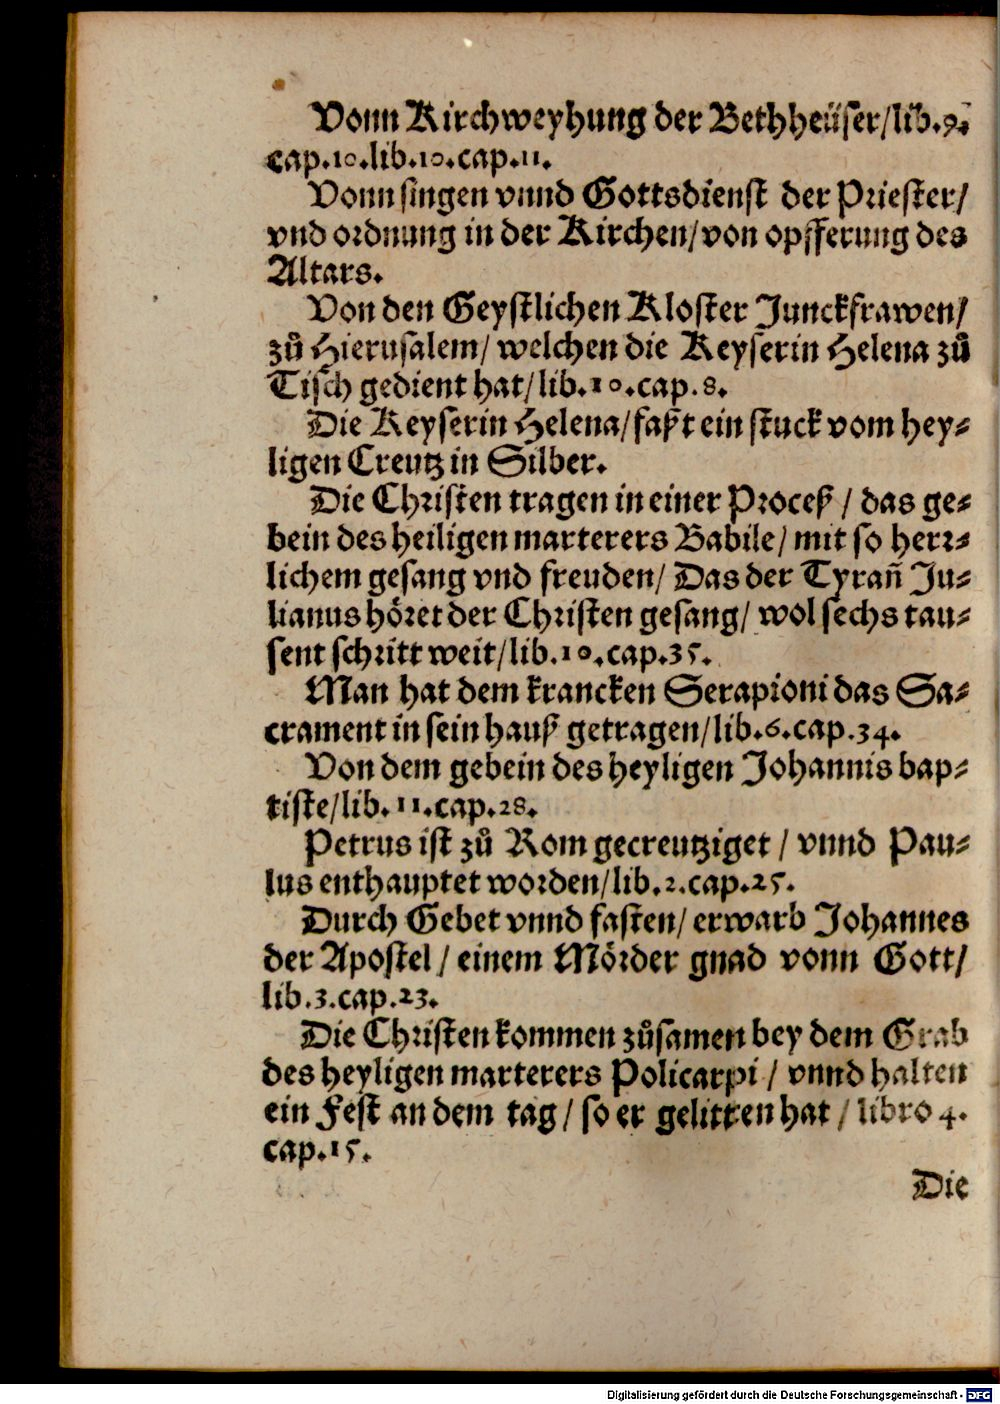 Vonn Kirchweyhung der Bethheüser/lib.9.
cap.10.lib.10.cap.11.
Vonn singen vnnd Gottsdienst der Priester/
vnd ordnung in der Kirchen/von opfferung des
Altars.
Von den Geystlichen Kloster Junckfrawen/
zů Hierusalem/ welchen die Keyserin Helena zů
Tisch gedient hat/lib.10.cap.8.
Die Keyserin Helena/faßt ein stuck vom hey⸗
ligen Creutz in Silber.
Die Christen tragen in einer Proceß / das ge⸗
bein des heiligen marterers Babile/ mit so herr⸗
lichem gesang vnd freuden/ Das der Tyrañ Ju⸗
lianus höret der Christen gesang/ wol sechs tau⸗
sent schritt weit/lib.10.cap.35.
Man hat dem krancken Serapioni das Sa⸗
crament in sein hauß getragen/lib.6.cap.34.
Von dem gebein des heyligen Johannis bap⸗
tiste/lib.11.cap.28.
Petrus ist zů Rom gecreutziget / vnnd Pau⸗
lus enthauptet worden/lib.2.cap.25.
Durch Gebet vnnd fasten/ erwarb Johannes
der Apostel / einem Mörder gnad vonn Gott/
lib.3.cap.23.
Die Christen kommen zůsamen bey dem Grab
des heyligen marterers Policarpi / vnnd halten
ein Fest an dem tag / so er gelitten hat / libro 4.
cap.15.
Die
Digitalisierung gefördert durch die Deutsche Forschungsgemeinschaft - DFG